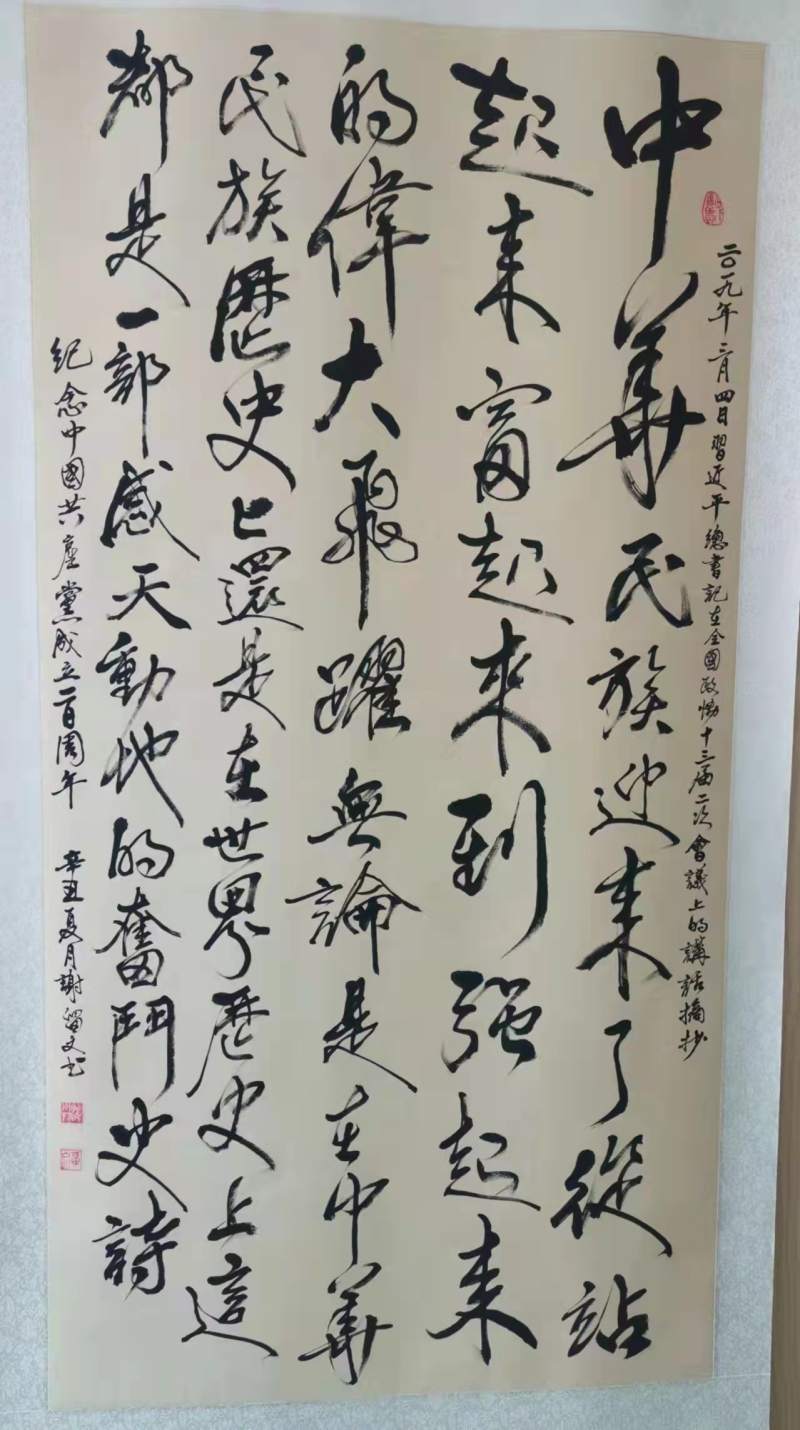 二〇一九年三月四日習近平總書記在全國政協十三屆二次會議上的講話摘抄
中華民族迎來了從站
起来富起來到强起来
的偉大飛躍無論是在中華
民族歷史上還是在世界歷史上這
都是一部感天動地的奮鬥史詩
紀念中國共產黨成立一百周年
辛丑夏月謝留文书